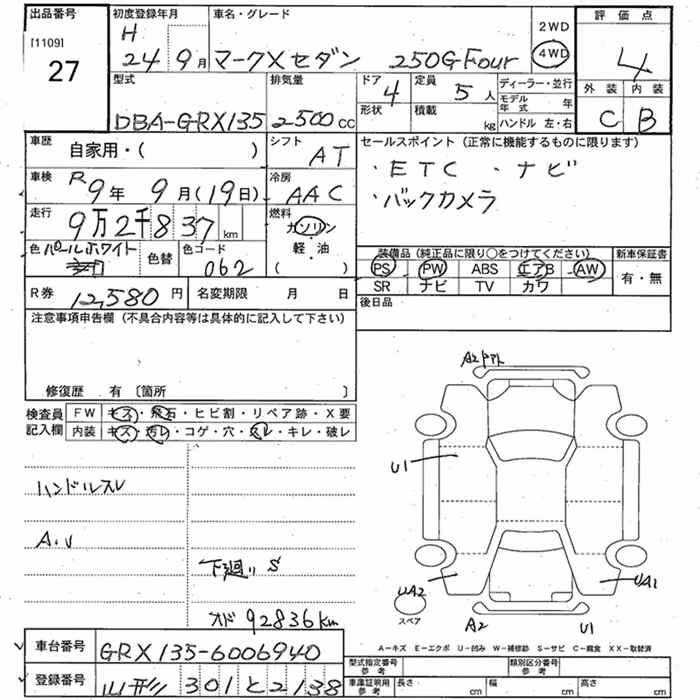 出品番号 初度登録年月 車名・グレード 2WD 評価点
[1109] H 4WD 4
27 24 9月 マークXセダン 250G Four
型式 排気量 ドア 定員 ディーラー・並行 外装 内装
4 5人 モデル年式 年
DBA-GRX135 2500cc 形状 積載 kg ハンドル 左・右 C B
車歴 自家用・( ) シフト AT セールスポイント (正常に機能するものに限ります)
・ETC ・ナビ
車検 R9年 9月(19日) 冷房 AAC ・バックカメラ
走行 9万2千837km 燃料 ガソリン・軽・油( )
色 パールホワイト 色替 色コード 062
装備品 (純正品に限り○をつけてください) 新車保証書
PS PW ABS エアB AW 有・無
SR ナビ TV カワ
R券 12,580円 名変期限 月 日 後日品
注意事項申告欄 (不具合内容等は具体的に記入して下さい)
修復歴 有 〔箇所 〕
検査員記入欄 FW キズ・飛石・ヒビ割・リペア跡・X要
内装 キズ・汚レ・コゲ・穴・スレ・キレ・破レ
ハンドルスレ
A.U
下廻り S
オド 92836km
A2
U1
UA2
UA1
A2 U1
スペア
A-キズ E-エクボ U-凹み W-補修跡 S-サビ C-腐食 XX-取替済
車台番号 GRX135-6006940
登録番号 山形 301 と 2138
型式指定番号 参考 類別区分番号 参考
車庫証明用 参考 長さ cm 幅 cm 高さ cm